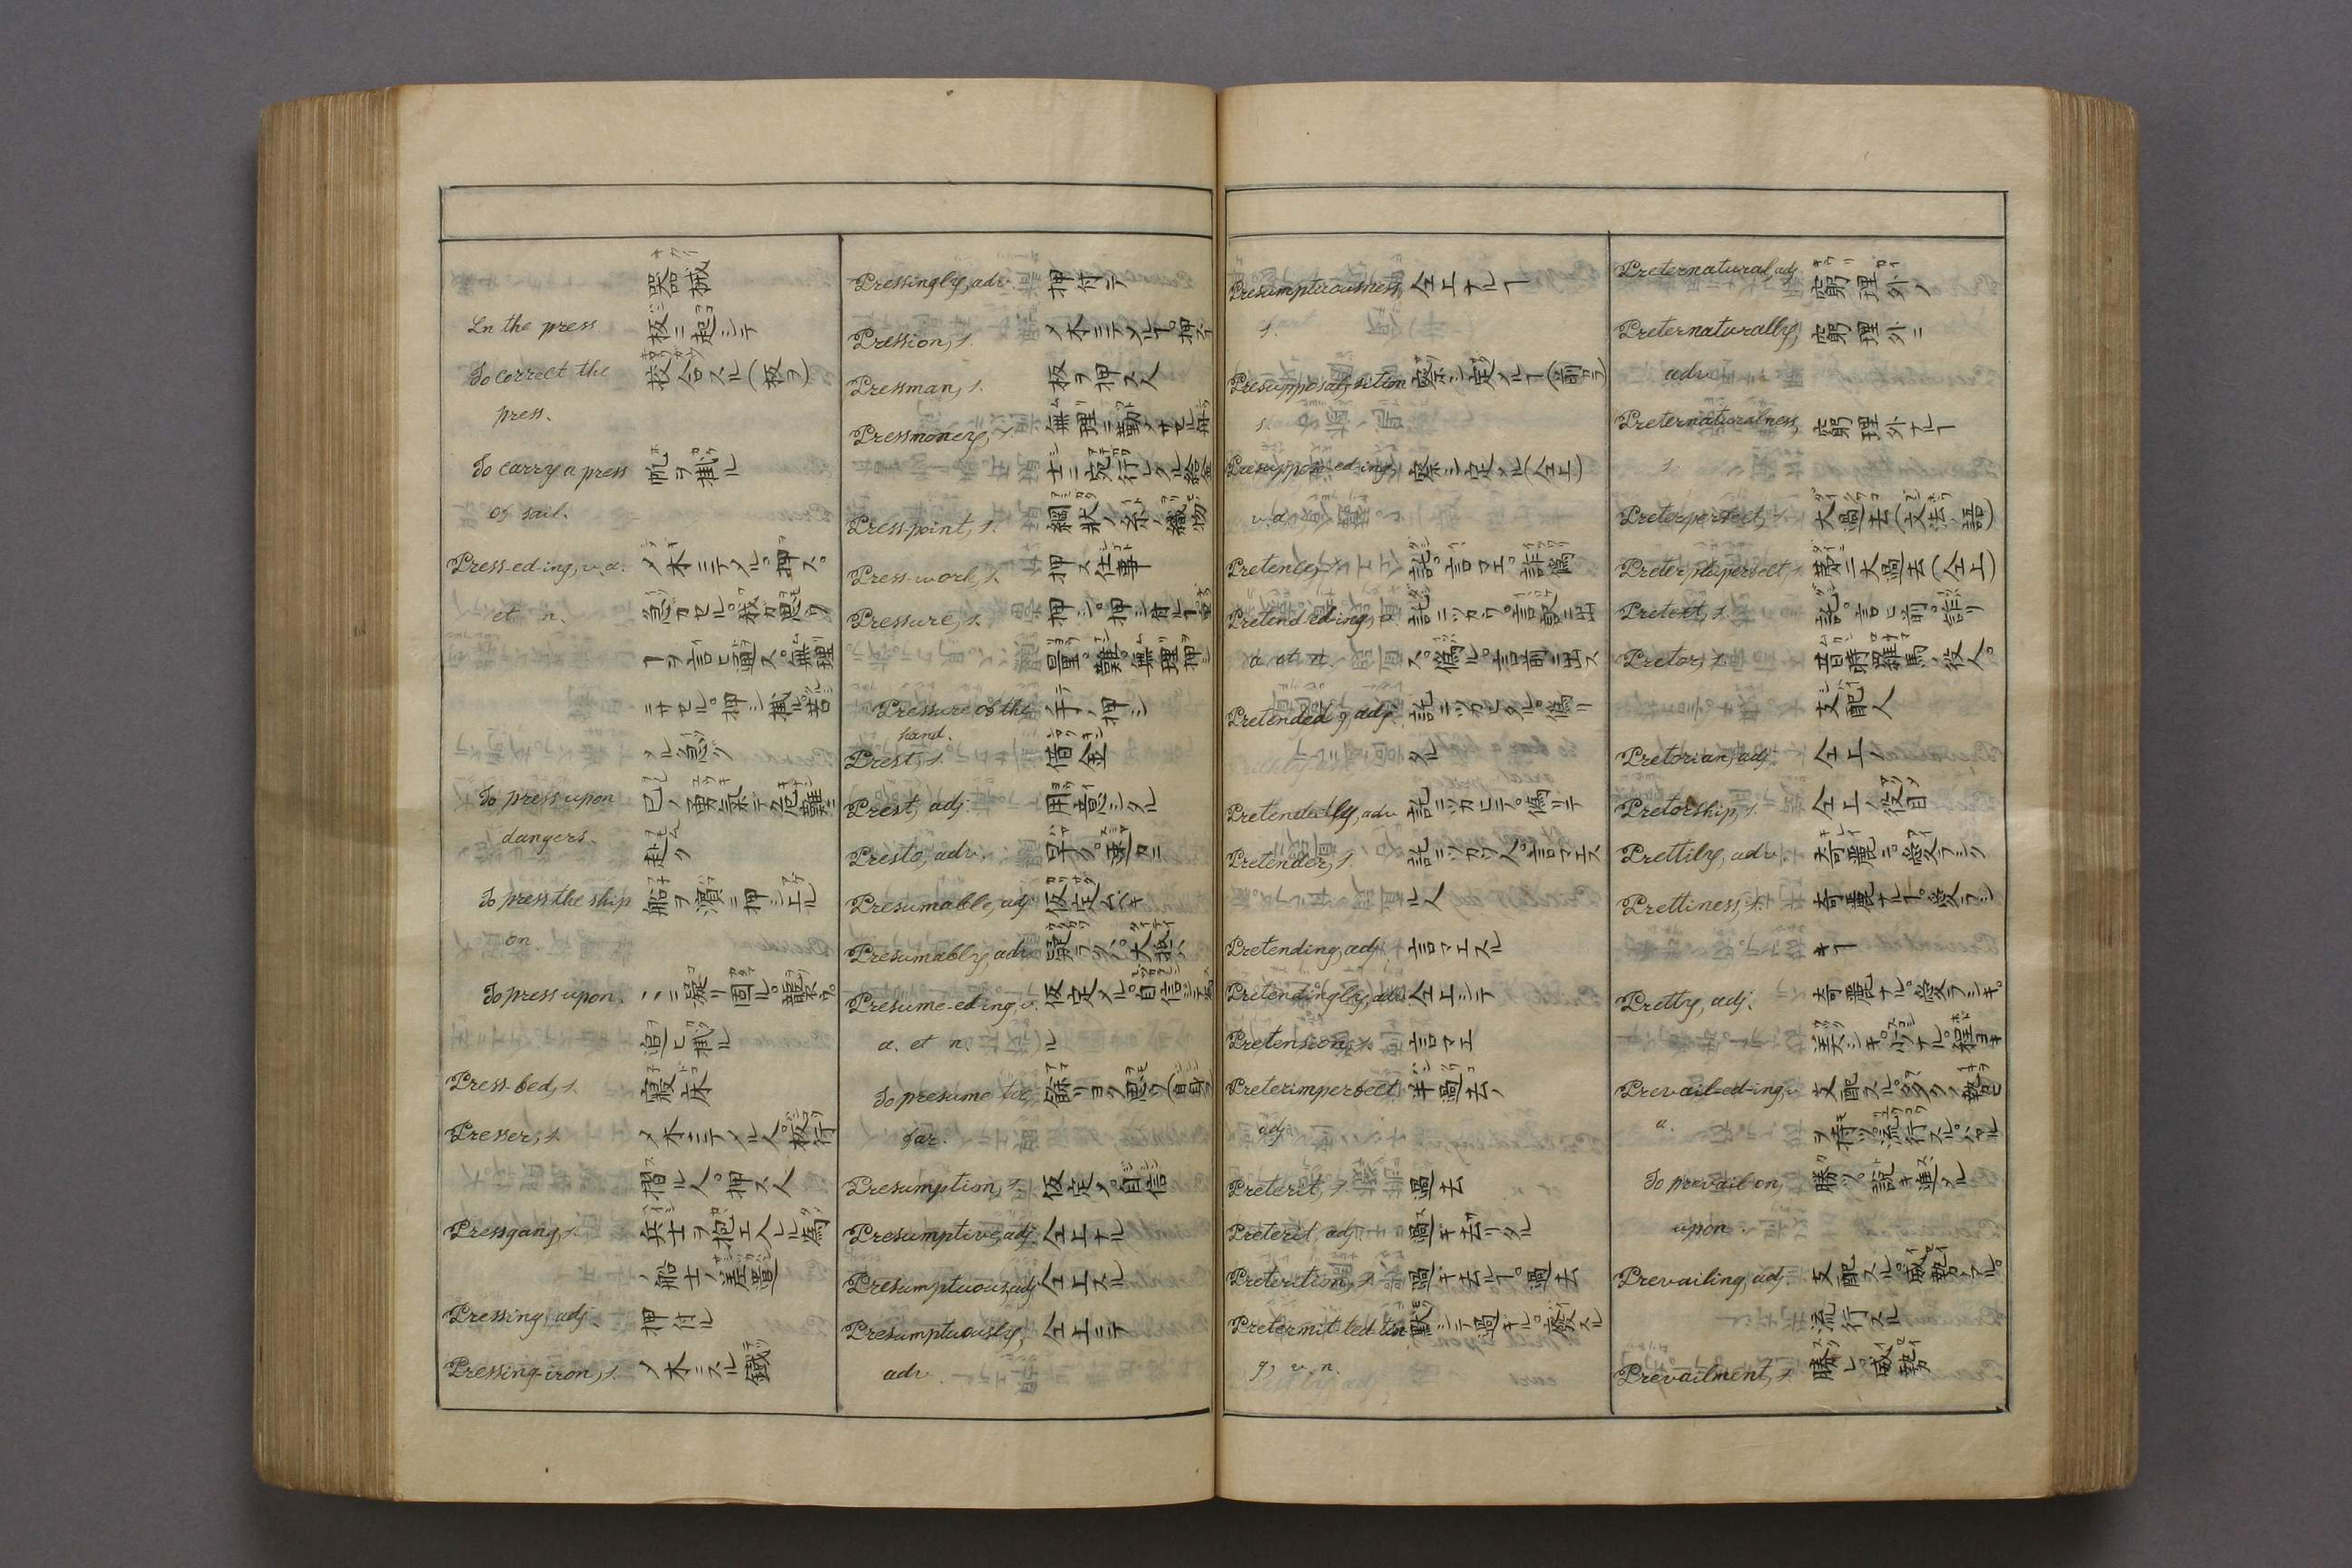 器械
In the press 板ニ起シテ
To correct the 校合スル(板ヲ)
press.
To carry a press 帆ヲ掛ル
of sail.
Press-ed-ing, v. a. 〆木ニテ〆ル。押ス。
et n. 急カセル。
ヿヲ言ヒ通ス。無理
ニサセル。押シ
To press upon 己ノ勇気テ危難ニ
dangers. 赴ク
To press the ship 船ヲ濱ニ押シ上ル
on.
To press upon. ニ凝リ固ル。襲フ。
追ヒ掛ル
Press-bed, s. 寝床
Presser, s. 〆木ニテ〆ル人。板行
摺ル人。押ス人
Pressgang, s. 兵士ヲ抱エ入レル為
ノ船士ノ差置
Pressing, adj. 押付ル
Pressing-iron, s. 〆木ニスル鐵
Pressingly, adv. 押付テ
Pression, s. 〆木ニテ〆ルヿ。押ヿ
Pressman, s. 板ヲ押ス人
Pressmoney, s. 無理ニ勤メサセル
士ニ
Press-point, s. 織物
Press-work, s. 押ス仕事
Pressure, s. 押シ。
量。難。無理押シ
Pressure of the 手ノ押シ
hand.
Prest, s. 借金
Prest, adj. 用意シタル
Presto, adv. 早ク。速カニ
Presumable, adj. 仮定ムベキ
Presumably, adv.
Presume-ed-ing, v. 仮定メル。自信シテ
a. et n. ル
To presume too 餘リヨク思フ
far.
Presumption, s. 仮定メ。自信
Presumptive, adj. 仝上ナル
Presumptuous, adj. 仝上スル
Presumptuously, 仝上ニテ
adv.
Presumptuousness, 仝上ナルヿ
s.
Presupposal, sition 察シ定メルヿ(前ヲ)
s.
Presuppose-ed-ing, 察シ定メル(仝上)
v. a.
Pretence, s. 託。言マエ。詐偽
Pretend-ed-ing, v. 託ニツカウ。
a. et n. ス。偽ル。言前ニ出ス
Pretended, adj. 託ニツカヒタル。偽リ
タル
Pretendedly, adv. 託ニツカヒテ。偽リテ
Pretender, s. 託ニツカウ人。言マエス
ル人
Pretending, adj. 言マエスル
Pretendingly, adv. 仝上シテ
Pretension, s. 言マエ
Preterimperfect, 半過去ノ
adj.
Preterit, s. 過去
Preterit, adj. 過ギ去リタル
Preterition, s. 過ギ去ルヿ。過去
Pretermit-ted-tin 黙シテ過キル。廢スル
g, v. n.
Preternatural, adj. 窮理外ノ
Preternaturally, 窮理外ニ
adv.
Preternaturalness, 窮理外ナルヿ
s.
Preterperfect, s. 大過去(文法ノ語)
Preterpluperfect, s. 第二大過去(仝上)
Pretext, s. 託。言ヒ前。詐リ
Pretor, s. 昔時羅馬ノ役人。
支配人
Pretorian, adj. 仝上ノ
Pretorship, s. 仝上ノ役目
Prettily, adv. 奇麗ニ。愛ラシク
Prettiness, s. 奇麗ナルヿ。愛ラシ
キヿ
Pretty, adj. 奇麗ナル。愛ラシキ。
美シキ。少ナル。程ヨキ
Prevail-ed-ing, v. 支配スル。
n. ヲ持ツ。流行スル。
To prevail on, 勝ツ。説キ進メル
upon.
Prevailing, adj. 支配スル。威勢ノアル。
流行スル
Prevailment, s. 勝レ。威勢